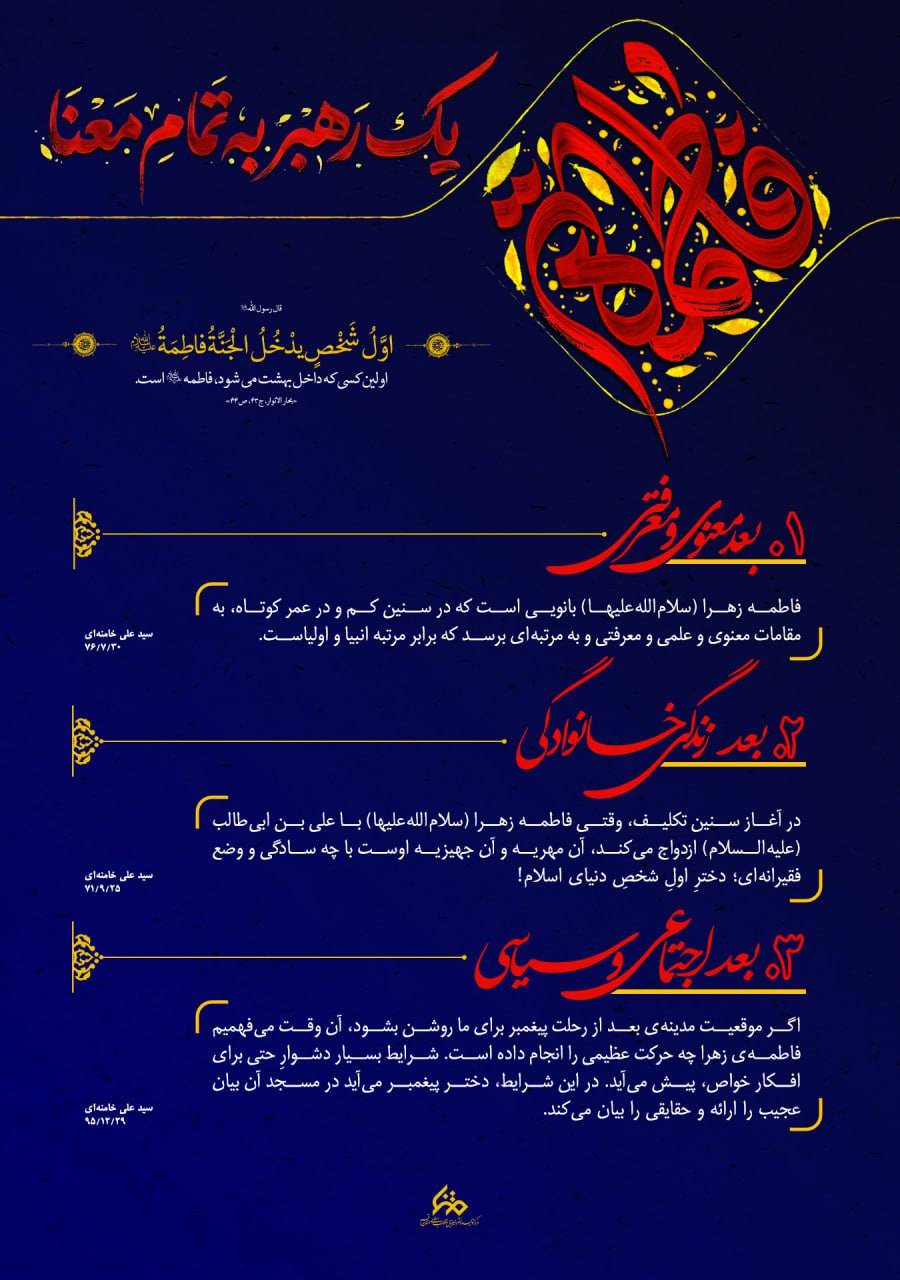 یک رهبر به تمام معنا
فاطمة
قال رسول الله ﷺ
اوَّلُ شَخْصٍ يدْخُلُ الْجَنَّةَ فاطِمَةُ علیهاالسلام
اولین کسی که داخل بهشت می شود، فاطمه است.
«بحار الانوار، ج۴۳، ص۴۴»
۰۱ بعد معنوی و معرفتی
فاطمه زهرا (سلام‌الله‌علیها) بانویی است که در سنین کم و در عمر کوتاه، به
مقامات معنوی و علمی و معرفتی و به مرتبه‌ای برسد که برابر مرتبه انبیا و اولیاست.
سید علی خامنه‌ای
۷۶/۷/۳۰
۰۲ بعد زندگی خانوادگی
در آغاز سنین تکلیف، وقتی فاطمه زهرا (سلام‌الله‌علیها) با علی بن ابی‌طالب
(علیه‌السلام) ازدواج می‌کند، آن مهریه و آن جهیزیه اوست با چه سادگی و وضع
فقیرانه‌ای؛ دخترِ اولِ شخصِ دنیای اسلام!
سید علی خامنه‌ای
۷۱/۹/۲۵
۰۳ بعد اجتماعی و سیاسی
اگر موقعیت مدینه‌ی بعد از رحلت پیغمبر برای ما روشن بشود، آن وقت می‌فهمیم
فاطمه‌ی زهرا چه حرکت عظیمی را انجام داده است. شرایط بسیار دشوارِ حتی برای
افکار خواص، پیش می‌آید. در این شرایط، دختر پیغمبر می‌آید در مسجد آن بیان
عجیب را ارائه و حقایقی را بیان می‌کند.
سید علی خامنه‌ای
۹۵/۱۲/۲۹